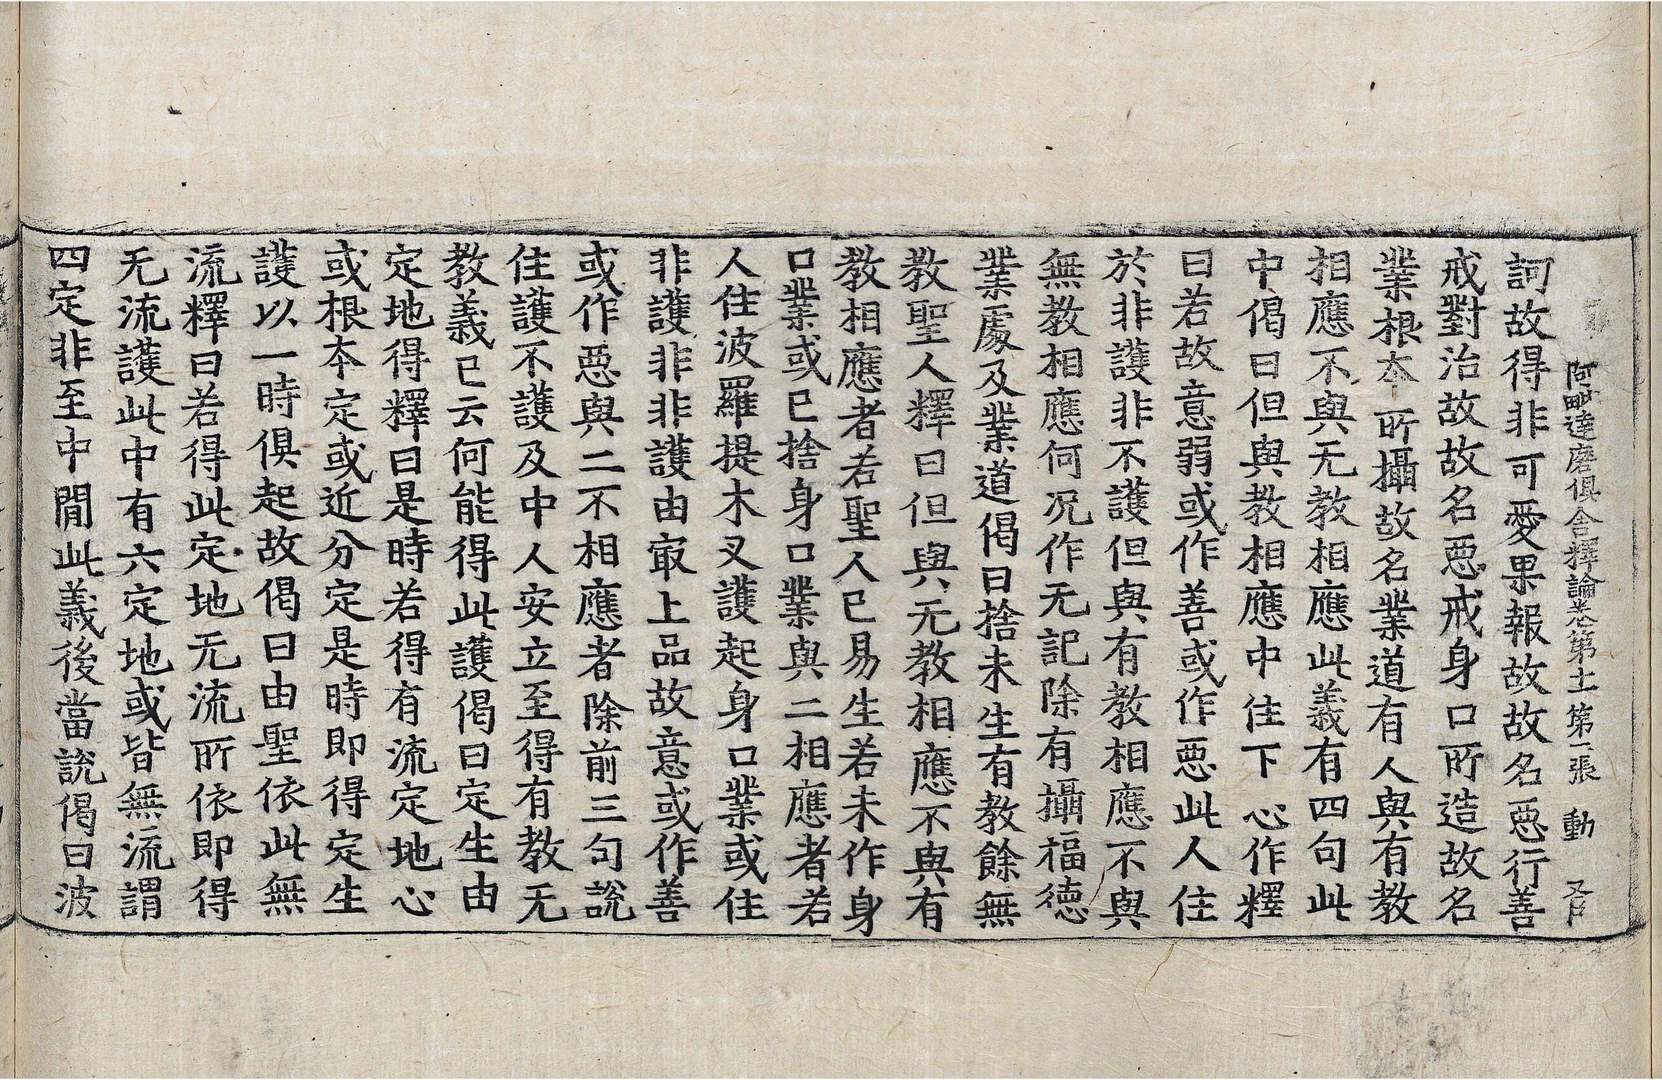 阿毗達磨俱舍釋論卷第十一 第二張 動
訶故得非可愛果報故故名惡行善
戒對治故故名惡戒身口所造故名
業根本所攝故名業道有人與有教
相應不與无教相應此義有四句此
中偈曰但與教相應中住下心作釋
曰若故意弱或作善或作惡此人住
於非護非不護但與有教相應不與
無教相應何況作无記除有攝福德
業處及業道偈曰捨未生有教餘無
教聖人釋曰但與无教相應不與有
教相應者若聖人已易生若未作身
口業或已捨身口業與二相應者若
人住波羅提木叉護起身口業或住
非護非非護由㝡上品故意或作善
或作惡與二不相應者除前三句說
住護不護及中人安立至得有教无
教義已云何能得此護偈曰定生由
定地得釋曰是時若得有流定地心
或根本定或近分定是時即得定生
護以一時俱起故偈曰由聖依此無
流釋曰若得此定地无流所依即得
无流護此中有六定地或皆無流謂
四定非至中間此義後當說偈曰波